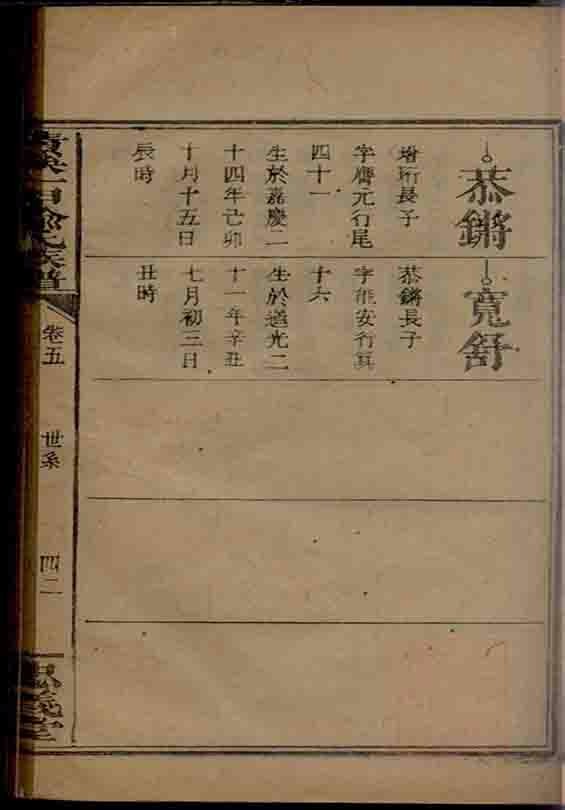 恭鏘
增珩長子
字膺元行尾
四十一
生於嘉慶二
十四年己卯
十月十五日
辰時
寬舒
恭鏘長子
字能安行箕
十六
生於道光二
十一年辛丑
七月初三日
丑時
氏族譜
卷五
世系
四二
忠義堂